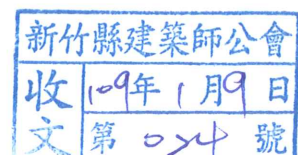 新竹縣建築師公會
收文
109年1月9日
第024號